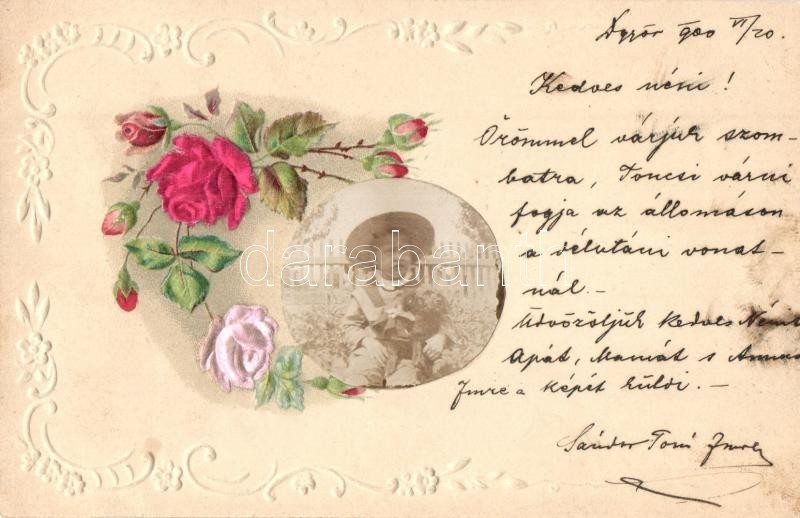 Dgyőr 900 VI/20.
Kedves néni!
Örömmel várjuk szom-
batra, Toncsi várni
fogja az állomáson
a délutáni vonat-
nál. -
Üdvözöljük Kedves
Apát, Mamát s
Imre a képét küldi. -
Sándor Toni Imre
darabanth